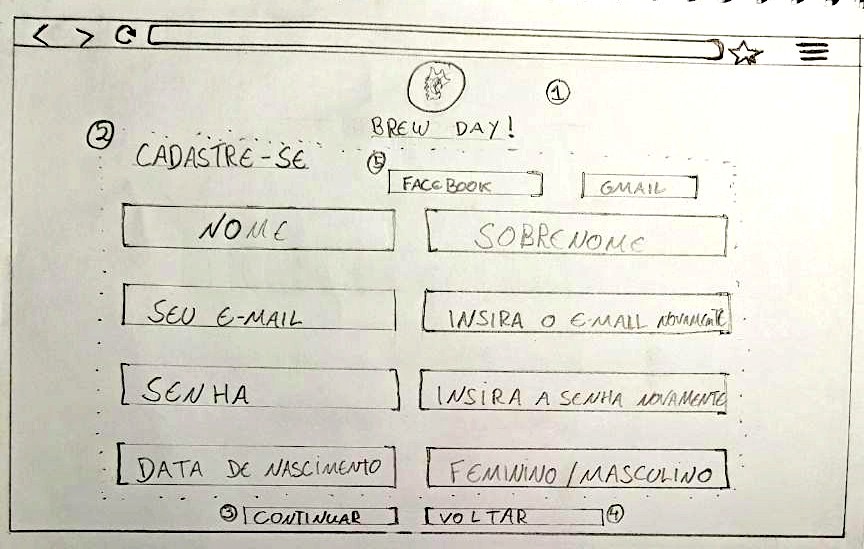 1
BREW DAY!
2
CADASTRE-SE
5 FACEBOOK GMAIL
NOME SOBRENOME
SEU E-MAIL INSIRA O E-MAIL NOVAMENTE
SENHA INSIRA A SENHA NOVAMENTE
DATA DE NASCIMENTO FEMININO/MASCULINO
3 CONTINUAR VOLTAR 4